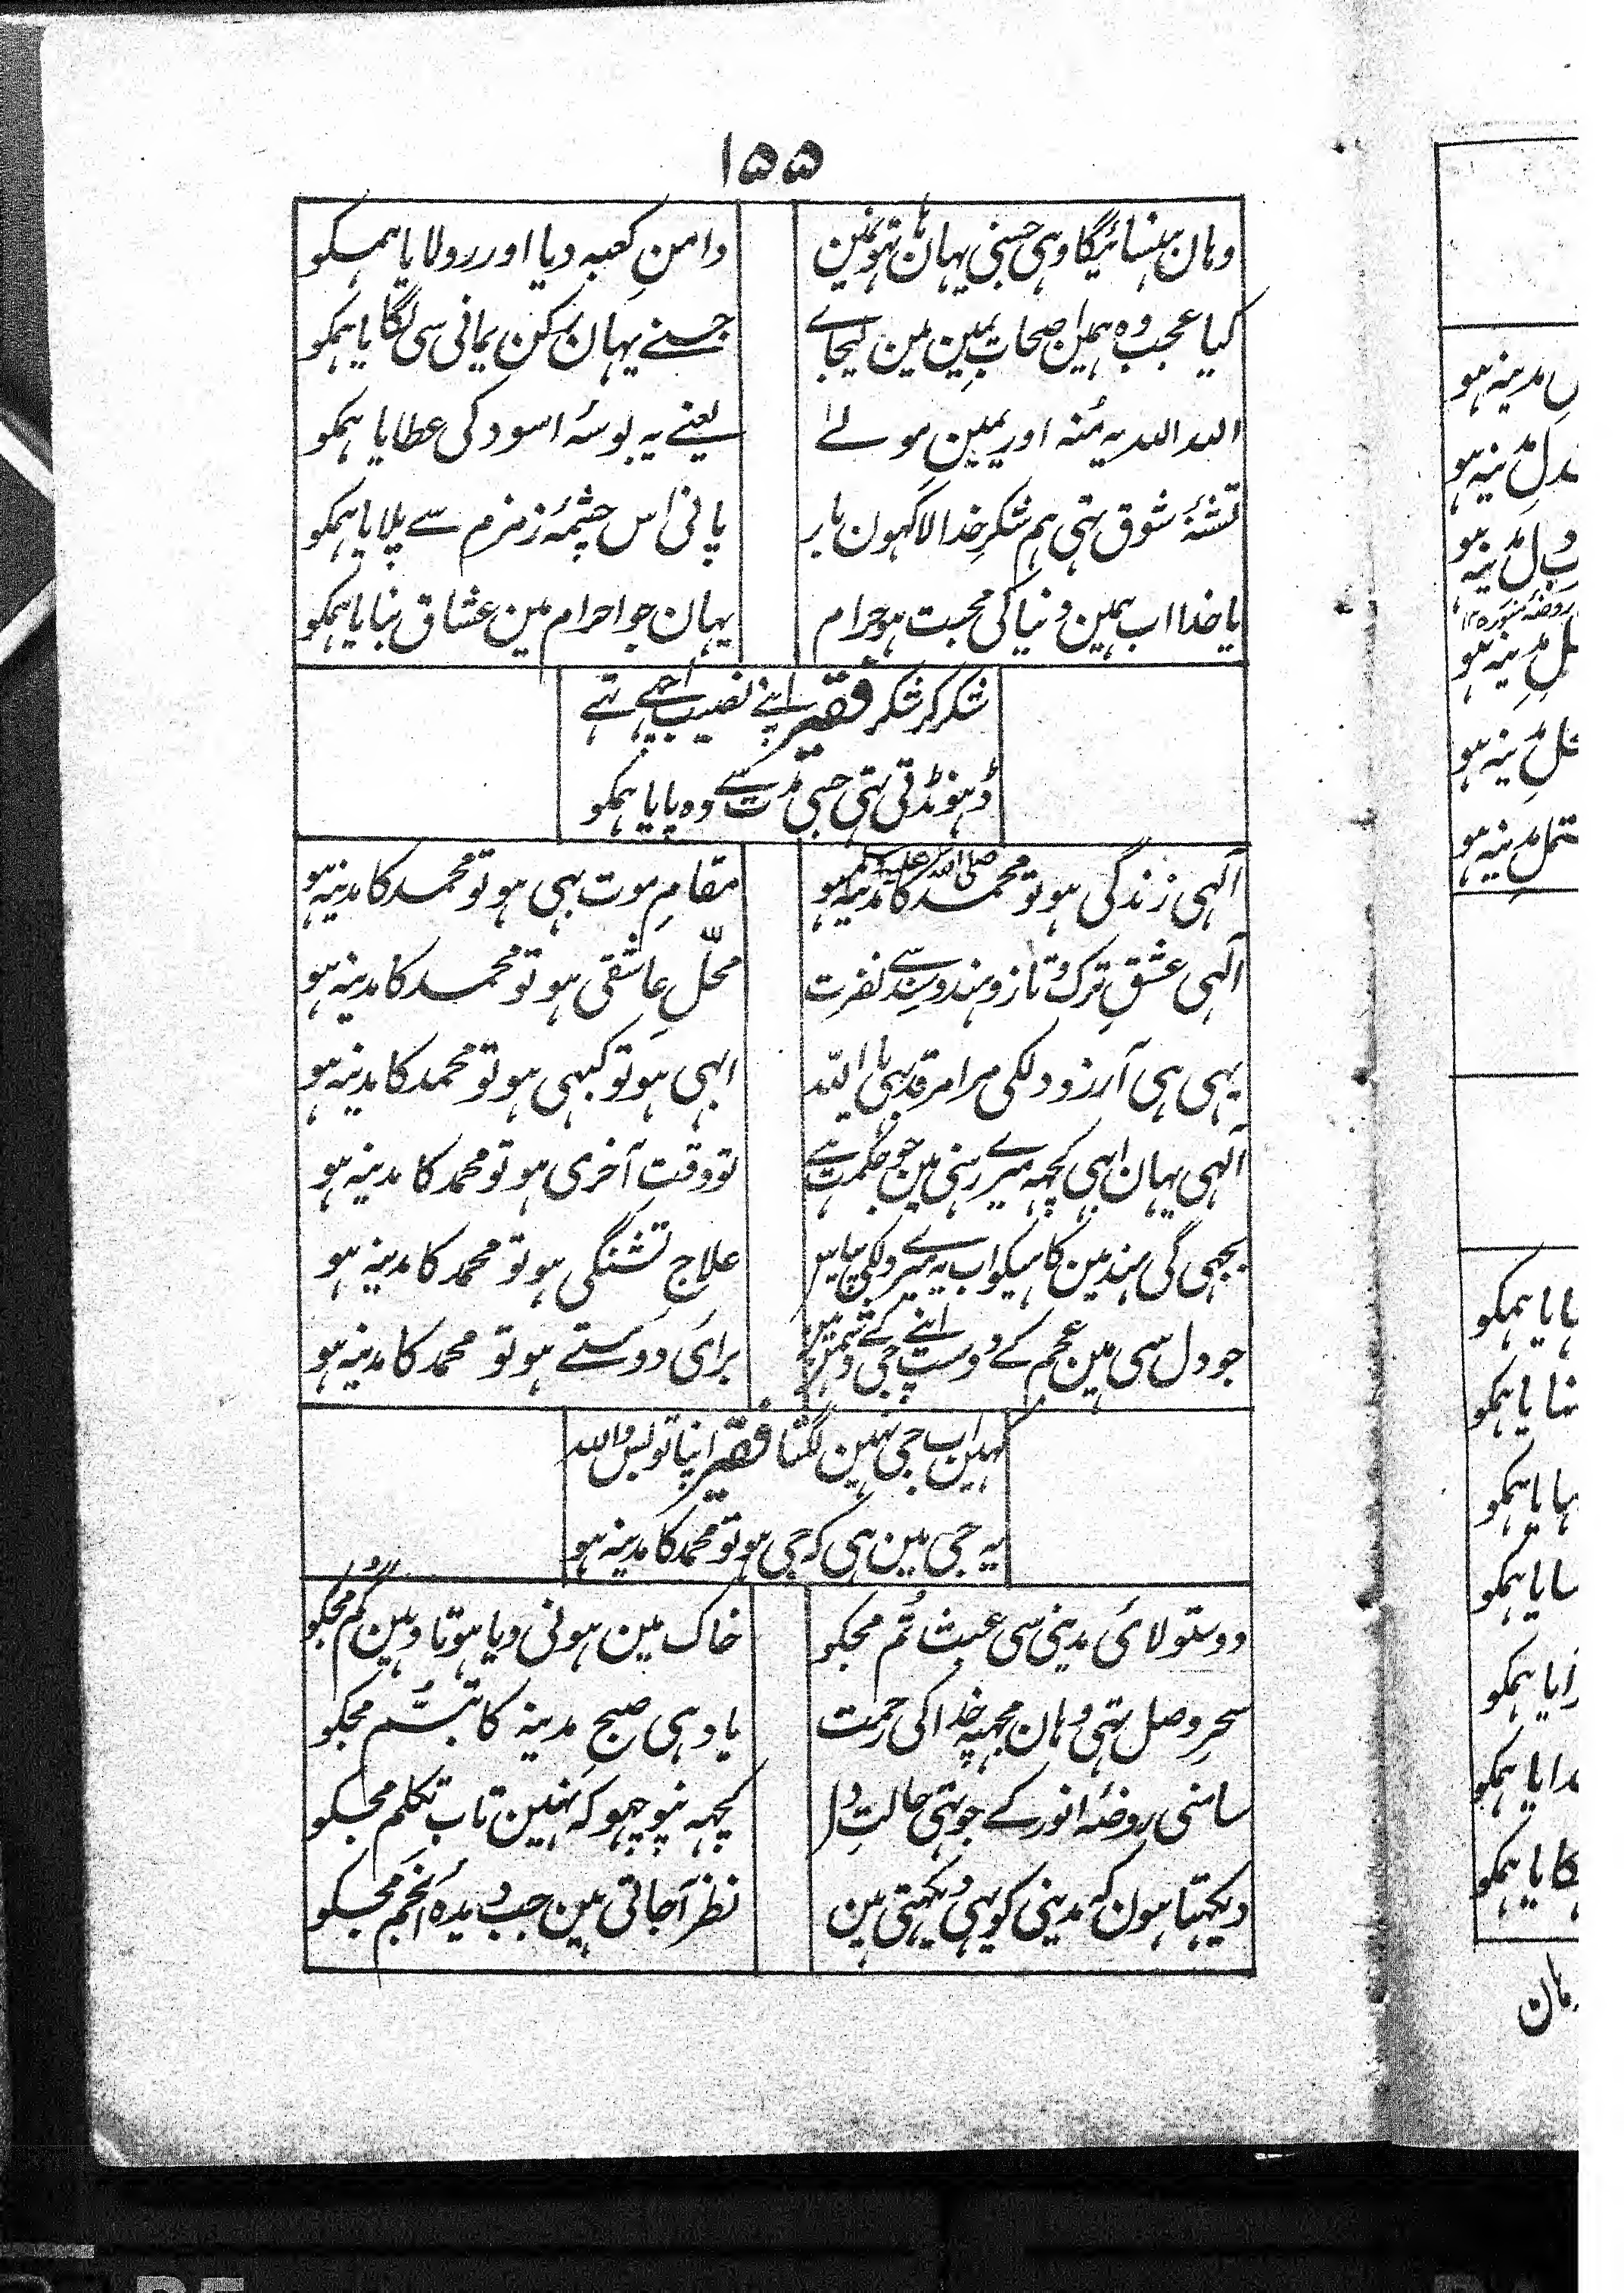 ۱۵۵
وہان ہنسائیگا وہی جسنی یہان ہاتھونمین
دامنِ کعبہ دیا اور رولایا ہمکو
کیا عجب وہ ہمین اصحابِ یمین مین لیجاے
جسنے یہان رکنِ یمانی سی لگایا ہمکو
اللہ اللہ یہ مُنہ اور یمینِ مولے
یعنے یہ بوسۂ اسود کی عطایا ہمکو
تشنۂ شوق تہی ہم شکرِ خدا لاکہون بار
پانی اس چشمۂ زمزم سے پلایا ہمکو
یا خدا اب ہمین دنیا کی محبت ہو حرام
یہان جو احرام مین عشاق بنایا ہمکو
شکر کر شکر فقیر اپنے نصیب اچھے تھے
ڈہونڈتی تہی جسی مدت سے وہ پایا ہمکو
آلہی زندگی ہو تو محمد صلی اللہ علیہ وسلم کا مدینہ ہو
مقامِ موت بہی ہو تو محمد کا مدینہ ہو
آلہی عشقِ ترک و تاز و ہند و سند سے نفرت
محلِّ عاشقی ہو تو محمد کا مدینہ ہو
یہی ہی آرزو دلکی مرا مرقد بہی یا اللہ
ابہی ہو تو کبہی ہو تو محمد کا مدینہ ہو
آلہی یہان ابہی کچہہ میرے رہنی مین جو حکمت ہے
تو وقتِ آخری ہو تو محمد کا مدینہ ہو
بجہی گی ہند مین کاہیکو اب یہ میرے دلکی پیاس
علاجِ تشنگی ہو تو محمد کا مدینہ ہو
جو دل سی ہین عجم کے دوست اپنے جی کے دشمن ہین
برای دوستے ہو تو محمد کا مدینہ ہو
کہین اب جی نہین لگتا فقیر اپنا تو بس واللہ
یہ جی مین ہی کہ جی ہو تو محمد کا مدینہ ہو
دوستو لائی مدینی سی عبث تُم مجکو
خاک مین ہونی دیا ہوتا وہین گم مجکو
سحرِ وصل تہی وہان مجہپہ خدا کی رحمت
یاد ہی صبحِ مدینہ کا تبسُّم مجکو
سامنی روضۂ انور کے جو تہی حالتِ دل
کچہہ نپوچہو کہ نہین تاب تکلم مجکو
دیکہتا ہون کہ مدینی کو یہی دیکہتی ہین
نظر آجاتی ہین جب دیدہ انجم مجکو